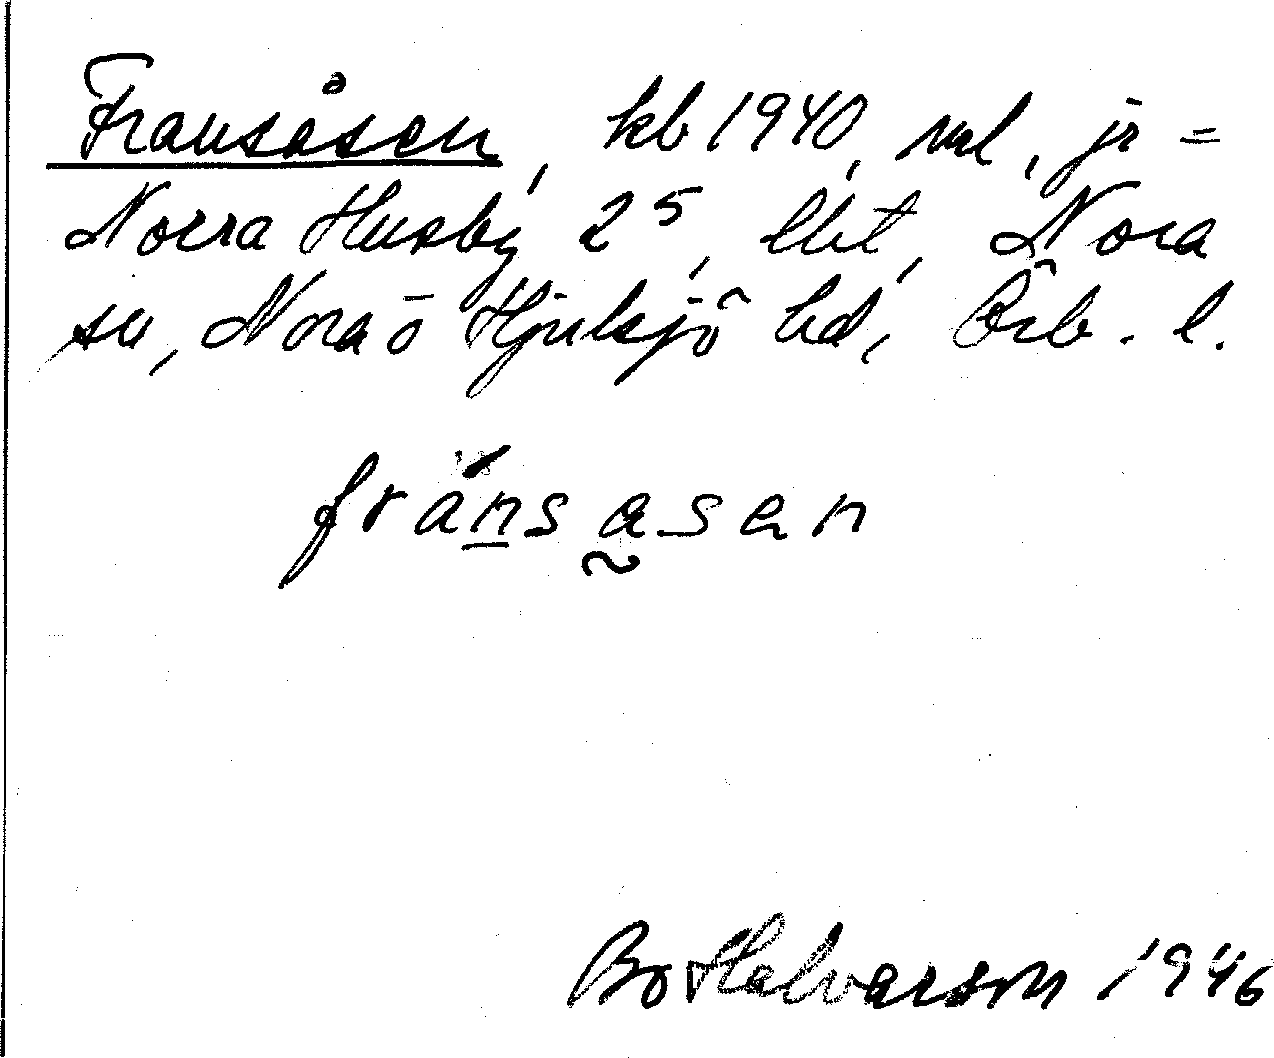 Fransåsen, kb 1940, vul, jr =
Norra Husby 2⁵, lht, Nora
sn, Nora o Hjulsjö hd, Örb. l.
fránsasen
Bo Halvarson 1946